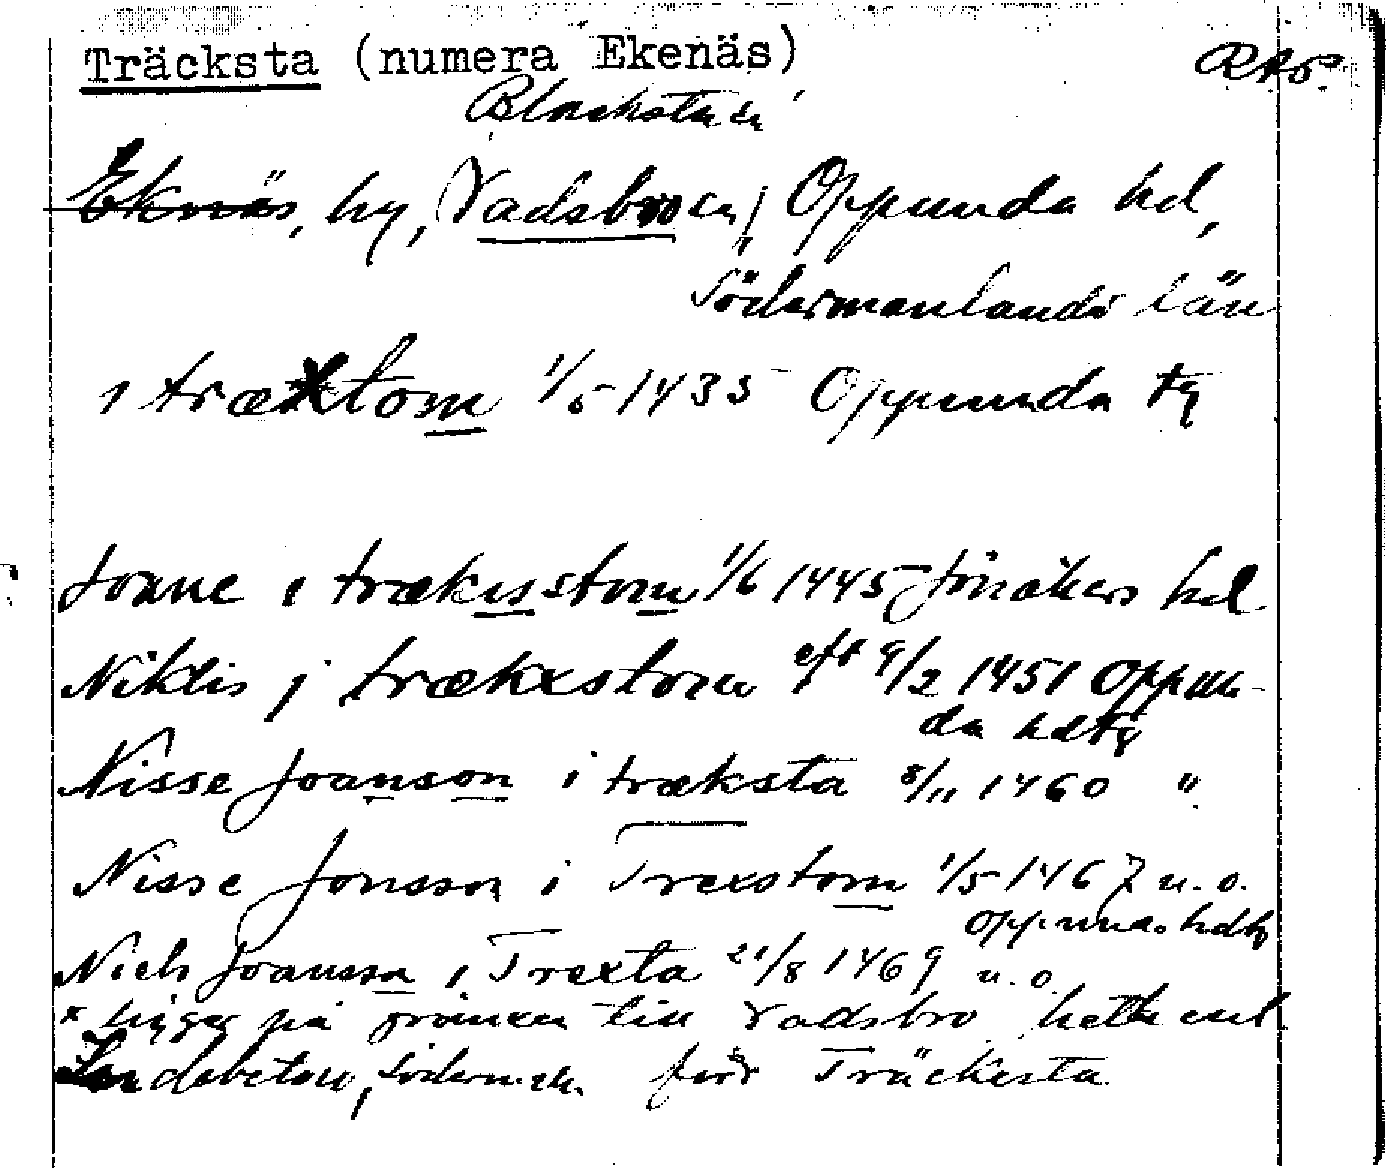 Träcksta (numera Ekenäs) RAp
Blacksta sn
Eknäs, by, (Vadsbro sn) Oppunda hd,
Södermanlands län
i trækstom 1/5 1435 Oppunda tg
Joane i trækisstom 1/6 1445 Jönåkers hd
Niklis j trækxstom eft 9/2 1451 Oppun-
da hdtg
Nisse Joanson i træksta 8/11 1460 "
Nisse Jonsson i Trexstom 1/5 1467 u. o.
Oppunda hdtg
Niels Joansson i Trexta 21/8 1469 u. o.
x ligger på gränsen till Vadsbro hette enl
Lindebetou, Söderm. förr Träcksta